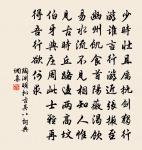 少時壯且厲撫劍獨行
遊誰言行遊近張掖至
幽州飢食首陽薇渴飲
易水流不見相知人惟
見古時丘路邊兩高墳
伯牙與莊周此士難再
得吾行欲何求
陶淵明擬古其八